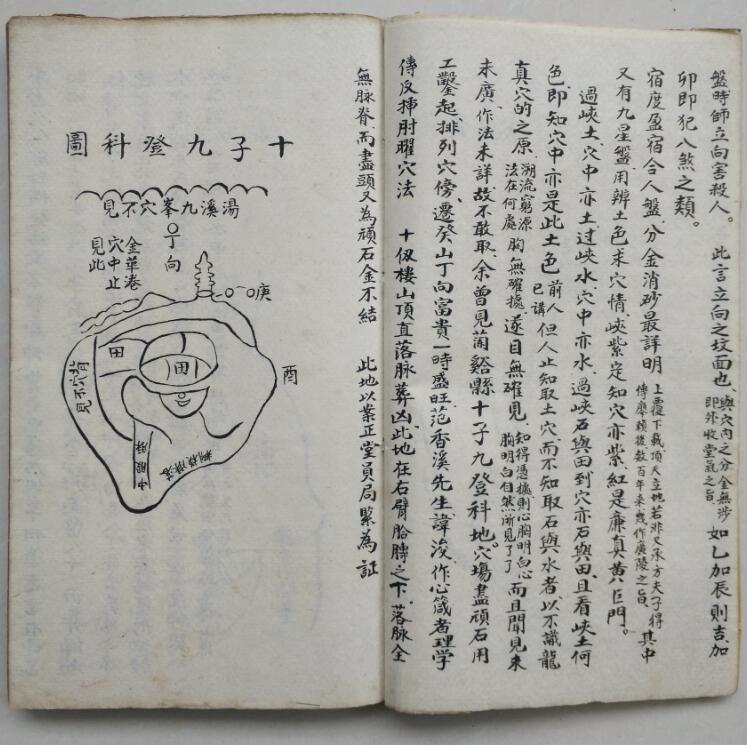 盤時師立向害殺人。 此言立向之坟面也、與穴內之分金無涉即外收堂氣之旨 如乙加辰則吉加
卯即犯八煞之類。
宿度盈宿合人盤、分金消砂最詳明 上覆下載頂天立地若非又承方夫子得其中傳廖賴後数百年来幾作廣陵之旨
又有九星盤用辨土色求穴情、峽紫定知穴亦紫、紅是廉真黄巨門。
過峽土、穴中亦土過峽水、穴中亦水、過峽石與田到穴亦石與田、且看峽土何
色、即知穴中亦是此土色 前人已講 但人止知取土穴而不知取石與水者、以不識龍
真穴的之原 溯流窮源法在何處 胸無確據、遂目無確見、知得憑據則心胸明白心胸明白自然所見了了 而且聞見未
未廣、作法未詳、故不敢取、余曾見蘭谿縣十子九登科地、穴塲盡頑石用
工鑿起、排列穴傍、遷癸山丁向富貴一時盛旺、范香溪先生、諱浚、作心箴者理學
傳反挿肘曜穴法 十伋樓山頂直落脉葬凶、此地在右臂胎膊之下、落脉全
無脉脊、而盡頭又為頑石金不結 此地以業正堂員局緊為証
十子九登科圖
湯溪九峯穴不見
丁向
金華港穴中止見此
庚
酉
背穴不見
田
田